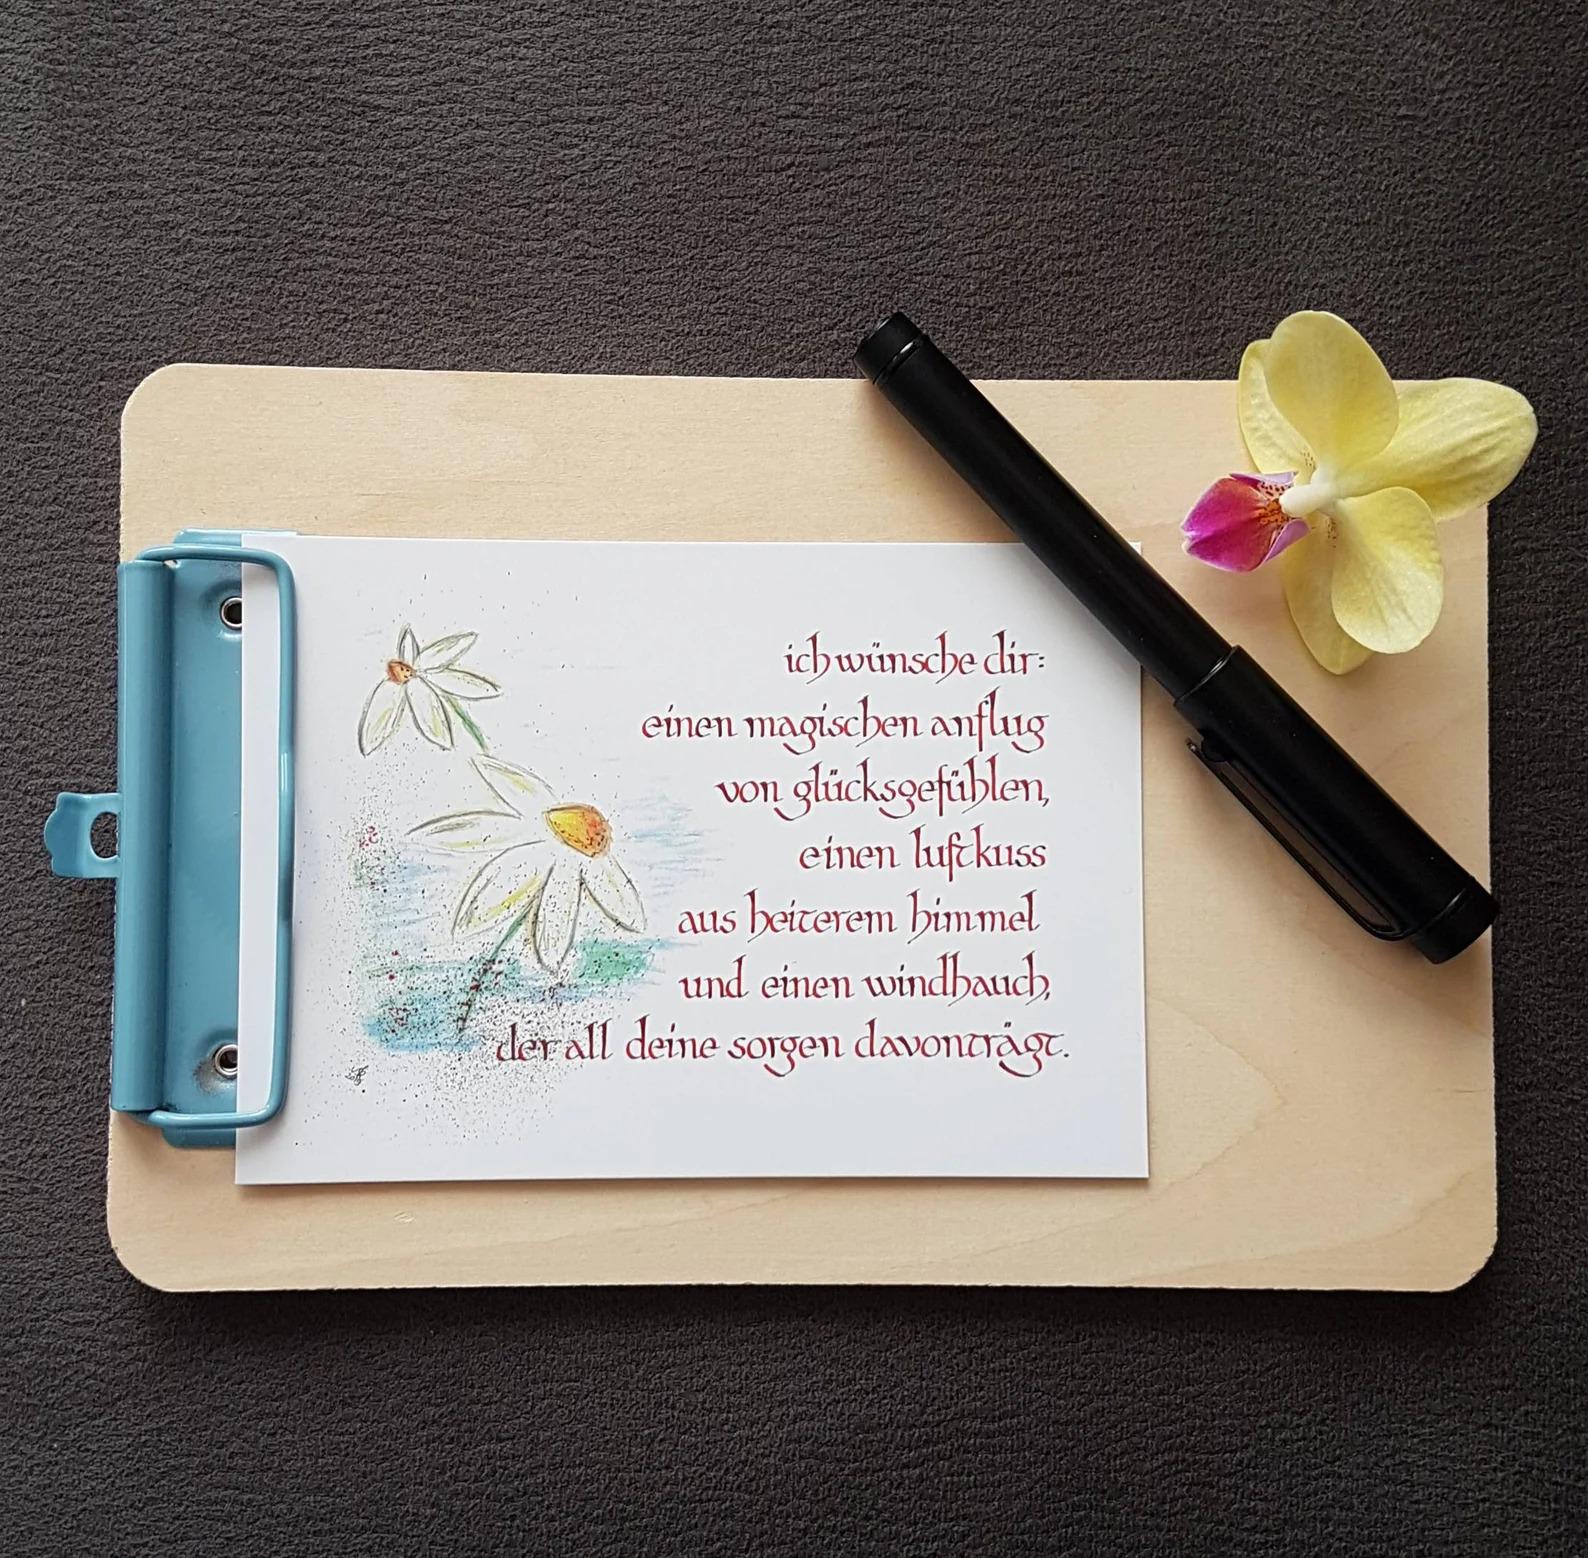 ich wünsche dir:
einen magischen anflug
von glücksgefühlen,
einen luftkuss
aus heiterem himmel
und einen windhauch,
der all deine sorgen davonträgt.